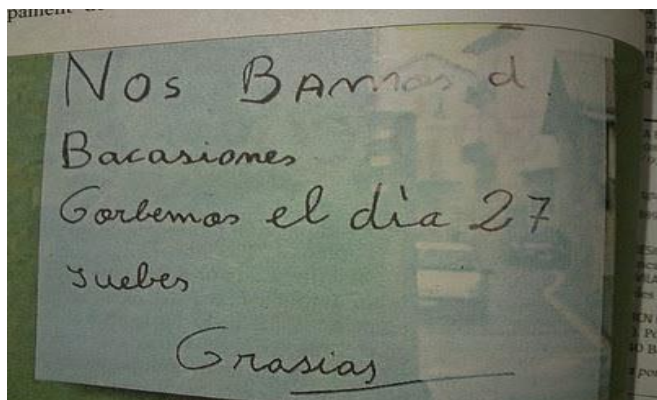 pament de
Nos BAMOS d
Bacasiones
Gorbemos el día 27
juebes
Grasias